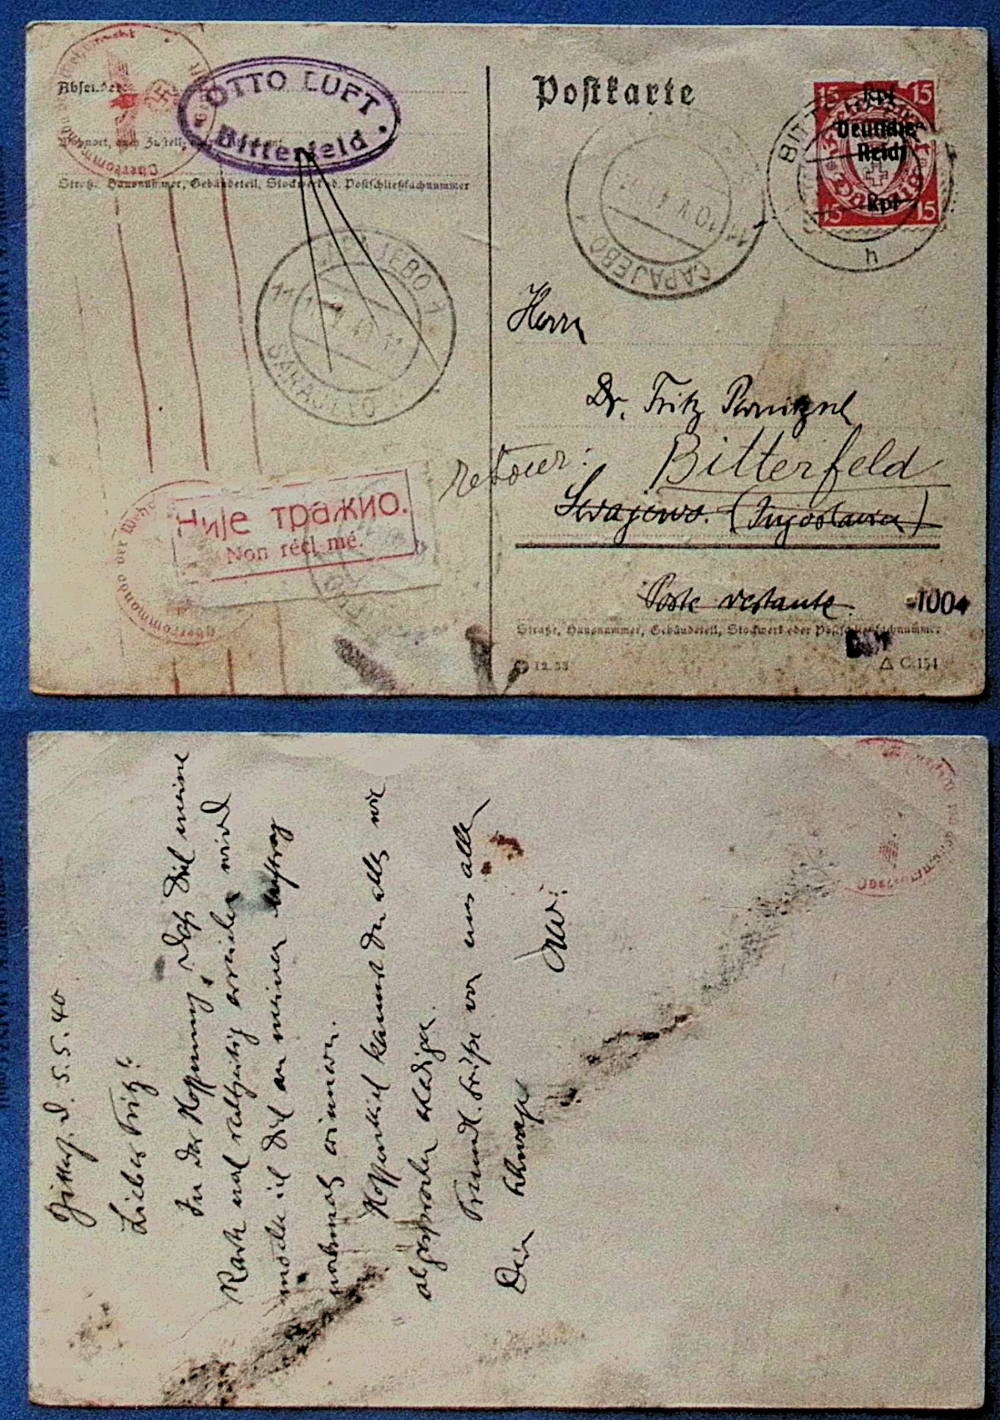 OTTO LUFT
Bitterfeld
Postkarte
15 Rpf 15
Deutsches
Reich
15 Rpf 15
BIT
h
Straße, Hausnummer, Gebäudeteil, Stockwerk od. Postschließfachnummer
САРАЈЕВО 1
SARAJEVO
САРАЈЕВО
10 V
11
Herrn
Dr. Fritz
retour: Bitterfeld
Sarajewo. (Jugoslawien)
Није тражио.
Non récl mé.
Oberkommando der Wehr
Poste restante
1004
Straße, Hausnummer, Gebäudeteil, Stockwerk oder Postschließfachnummer
12.38
C 154
d. 5.5.40
Lieber Fritz!
In der Hoffnung, daß Dich meine
Karte noch rechtzeitig erreichen wird
möchte ich Dich an meinen Auftrag
nochmals erinnern.
Hoffentlich kannst du alles wie
abgesprochen erledigen.
Freundl. Grüße von uns allen
Dein Schwager
Otto.